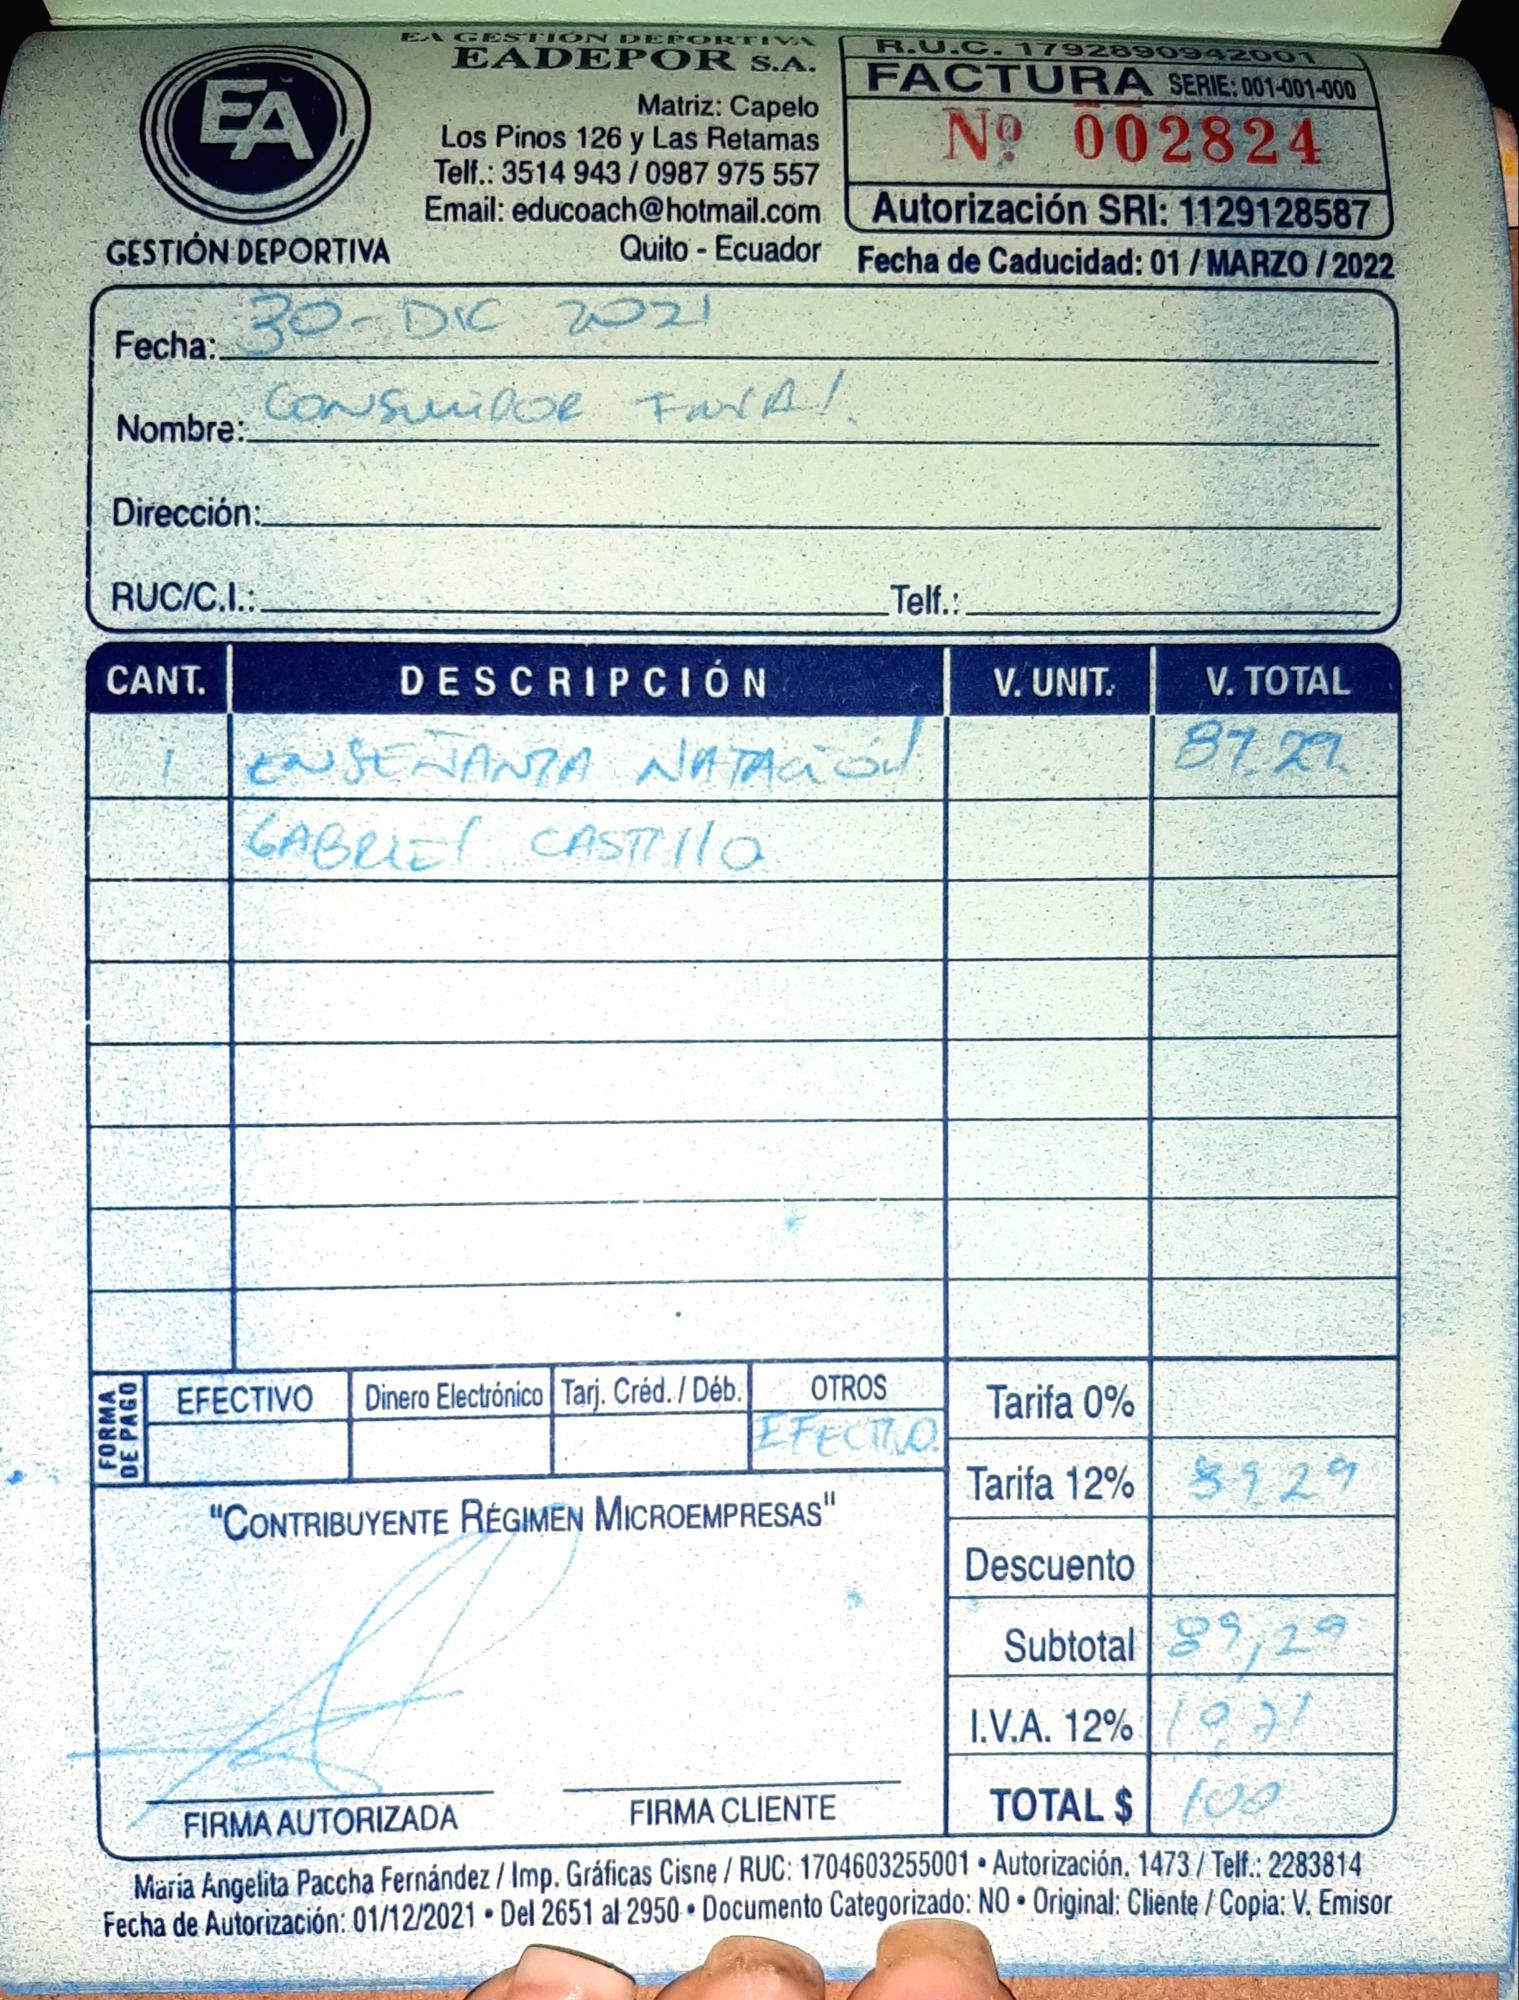 EA GESTIÓN DEPORTIVA
EADEPOR S.A.
EA
GESTIÓN DEPORTIVA
Matriz: Capelo
Los Pinos 126 y Las Retamas
Telf.: 3514 943 / 0987 975 557
Email: educoach@hotmail.com
Quito - Ecuador
R.U.C. 1792890942001
FACTURA SERIE: 001-001-000
Nº 002824
Autorización SRI: 1129128587
Fecha de Caducidad: 01 / MARZO / 2022
Fecha: 30-DIC 2021
Nombre: CONSUMIDOR FINAL.
Dirección:
RUC/C.I.: Telf.:
CANT. DESCRIPCIÓN V. UNIT. V. TOTAL
1 ENSEÑANZA NATACIÓN 87.29
GABRIEL CASTILLO
FORMA DE PAGO
EFECTIVO Dinero Electrónico Tarj. Créd. / Déb. OTROS
EFECTIVO.
Tarifa 0%
Tarifa 12% 89.29
Descuento
Subtotal 89,29
I.V.A. 12% 10,71
TOTAL $ 100
"CONTRIBUYENTE RÉGIMEN MICROEMPRESAS"
FIRMA AUTORIZADA FIRMA CLIENTE
María Angelita Paccha Fernández / Imp. Gráficas Cisne / RUC: 1704603255001 • Autorización. 1473 / Telf.: 2283814
Fecha de Autorización: 01/12/2021 • Del 2651 al 2950 • Documento Categorizado: NO • Original: Cliente / Copia: V. Emisor